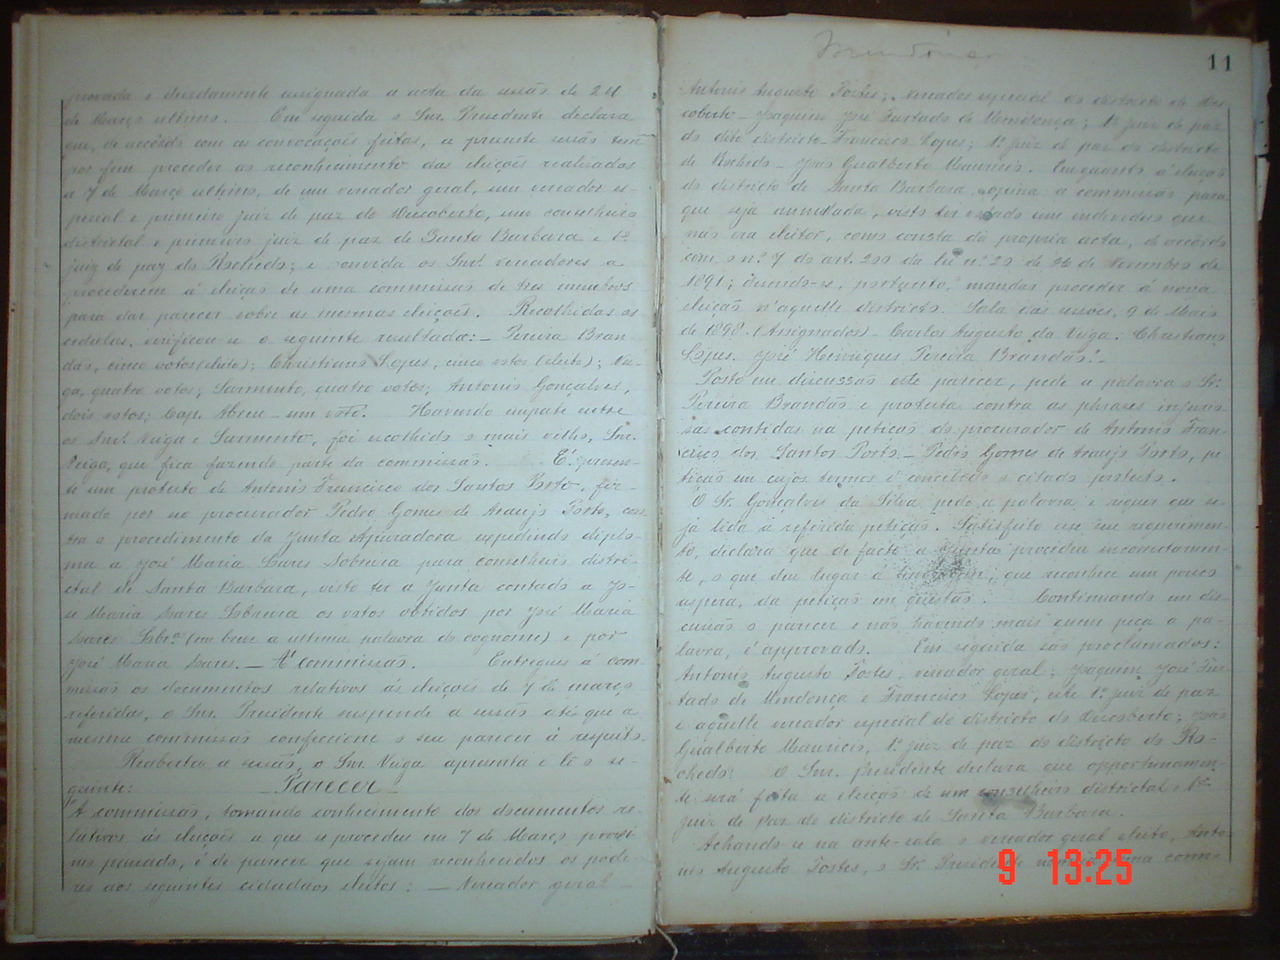 provada e devidamente assignada a acta da sessão de 24
de Março ultimo. Em seguida o Snr. Presidente declara
que, de accôrdo com as convocações feitas, a presente sessão tem
por fim proceder ao reconhecimento das eleições realisadas
a 7 de Março ultimo, de um vereador geral, um vereador es-
pecial e primeiro juiz de paz do Descoberto, um conselheiro
districtal e primeiro juiz de paz de Santa Barbara e 1º
juiz de paz do Rochedo; e convida os Snrs. vereadores a
procederem á eleição de uma commissão de tres membros
para dar parecer sobre as mesmas eleições. Recolhidas as
cedulas, verificou-se o seguinte resultado: - Pereira Bran-
dão, cinco votos (eleito); Christiano Lopes, cinco votos (eleito); Vei-
ga, quatro votos; Sarmento, quatro votos; Antonio Gonçalves,
dois votos; Cap. Abreu - um voto. Havendo empate entre
os Snrs. Veiga e Sarmento, foi escolhido o mais velho, Snr.
Veiga, que fica fazendo parte da commissão. É presen-
te um protesto de Antonio Francisco dos Santos Porto, fir-
mado por seo procurador Pedro Gomes de Araujo Porto, con-
tra o procedimento da Junta Apuradora expedindo diplo-
ma a José Maria Soares Sobreira para conselheiro distri-
ctal de Santa Barbara, visto ter a Junta contado a Jo-
sé Maria Soares Sobreira os votos obtidos por José Maria
Soares Sobrº (ou bem a ultima palavra do cognome) e por
José Maria Soares. - Á commissão. Entregues á com-
missão os documentos relativos ás eleições de 7 de março
referidas, o Snr. Presidente suspende a sessão até que a
mesma commissão confeccione o seu parecer á respeito.
Reaberta a sessão, o Snr. Veiga apresenta e lê o se-
guinte: - Parecer -
A commissão, tomando conhecimento dos documentos re-
lativos ás eleições a que se procedeu em 7 de Março proxi-
mo passado, é de parecer que sejam reconhecidos os pode-
res aos seguintes cidadãos eleitos: - Vereador geral -
Mendonça
11
Antonio Augusto Fortes; Vereador especial do districto do Des-
coberto - Joaquim José Furtado de Mendonça; 1º juiz de paz
do dito districto - Francisco Lopes; 1º juiz de paz do districto
do Rochedo - João Gualberto Mauricio. Emquanto á eleição
do districto de Santa Barbara opina a commissão para
que seja annullada, visto ter votado um individuo que
não era eleitor, como consta da propria acta, de accôrdo
com o nº 7 do art. da lei nº 20 de 26 de Novembro de
1891; devendo-se, portanto, mandar proceder á nova
eleição n'aquelle districto. Sala das sessões, 9 de Maio
de 1898. (Assignados) - Carlos Augusto da Veiga. Christiano
Lopes. José Henriques Pereira Brandão. -
Posto em discussão este parecer, pede a palavra o Sr.
Pereira Brandão e protesta contra as phrases injurio-
sas contidas na petição do procurador de Antonio Fran-
cisco dos Santos Porto - Pedro Gomes de Araujo Porto, pe-
tição em cujos termos é concebido o citado protesto.
O Sr. Gonçalves da Silva pede a palavra e requer que se-
ja lida a referida petição. Satisfeito esse seu requerimen-
to, declara que de facto a Junta procedeu incorrectamen-
te, o que deu lugar á linguagem, que reconhece um pouco
aspera, da petição em questão. Continuando em dis-
cussão o parecer e não havendo mais quem peça a pa-
lavra, é approvado. Em seguida são proclamados:
Antonio Augusto Fortes, vereador geral; Joaquim José Fur-
tado de Mendonça e Francisco Lopes, este 1º juiz de paz
e aquelle vereador especial do districto do Descoberto; João
Gualberto Mauricio, 1º juiz de paz do districto do Ro-
chedo. O Snr. Presidente declara que opportunamen-
te será feita a eleição de um conselheiro districtal e 1º
juiz de paz do districto de Santa Barbara.
Achando-se na ante-sala o vereador geral eleito, Anto-
nio Augusto Fortes, o Sr. Presidente uma commis-
9 13:25